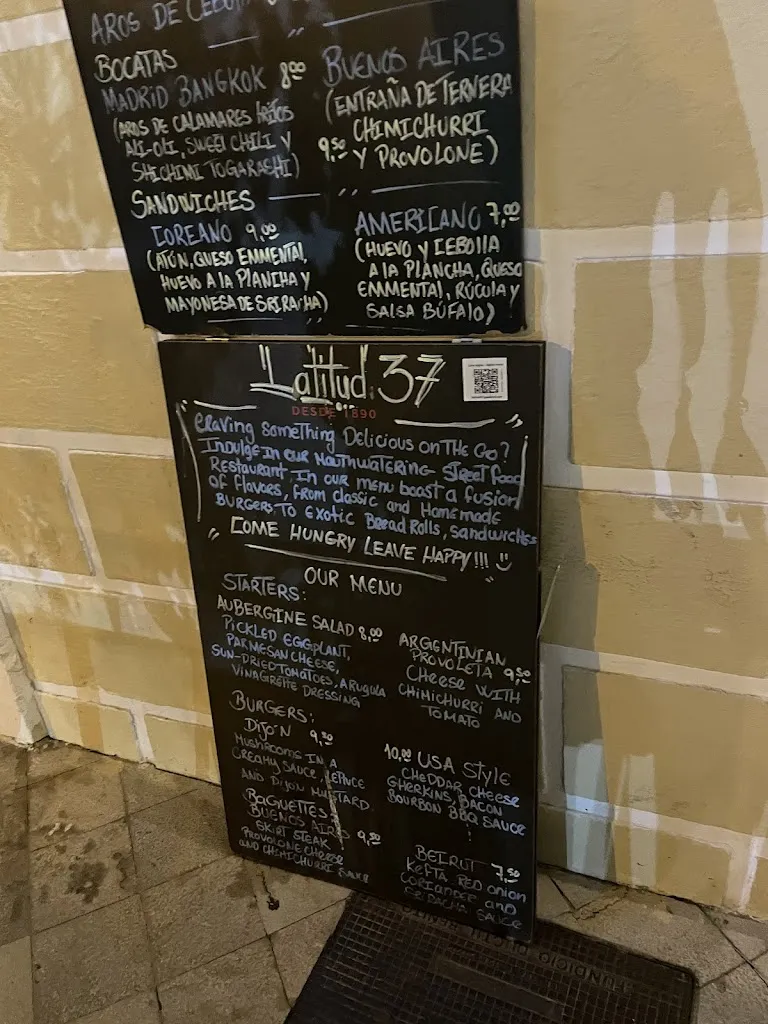 AROS DE CEBOLLA
BOCATAS
MADRID BANGKOK 8,00
(AROS DE CALAMARES FRITOS
ALI-OLI, SWEET CHILI Y
SHICHIMI TOGARASHI)
BUENOS AIRES
(ENTRAÑA DE TERNERA
CHIMICHURRI
9,50 Y PROVOLONE)
SANDWICHES
COREANO 9,00
(ATÚN, QUESO EMMENTAL,
HUEVO A LA PLANCHA Y
MAYONESA DE SRIRACHA)
AMERICANO 7,00
(HUEVO Y CEBOLLA
A LA PLANCHA, QUESO
EMMENTAL, RÚCULA Y
SALSA BÚFALO)
Latitud 37
DESDE 1890
Craving Something Delicious on THE GO?
Indulge in our Mouthwatering Street food
Restaurant. In our menu boast a fusion
of flavors, from classic and Homemade
BURGERS TO Exotic Bread Rolls, Sandwiches
" COME HUNGRY LEAVE HAPPY!!! "
OUR MENU
STARTERS:
AUBERGINE SALAD 8,00
PICKLED EGGPLANT,
PARMESAN CHEESE,
SUN-DRIED TOMATOES, ARUGULA
VINAGRETTE DRESSING
ARGENTINIAN
PROVOLETA 9,50
CHEESE WITH
CHIMICHURRI AND
TOMATO
BURGERS:
DIJON 9,50
MUSHROOMS IN A
CREAMY SAUCE, LETTUCE
AND DIJON MUSTARD
10,00 USA STYLE
CHEDDAR CHEESE
GHERKINS, BACON
BOURBON BBQ SAUCE
BAGUETTES:
BUENOS AIRES 9,50
SKIRT STEAK
PROVOLONE CHEESE
AND CHIMICHURRI SAUCE
BEIRUT 7,50
KEFTA RED ONION
CORIANDER AND
SRIRACHA SAUCE
FUNDICIO DUCTIL